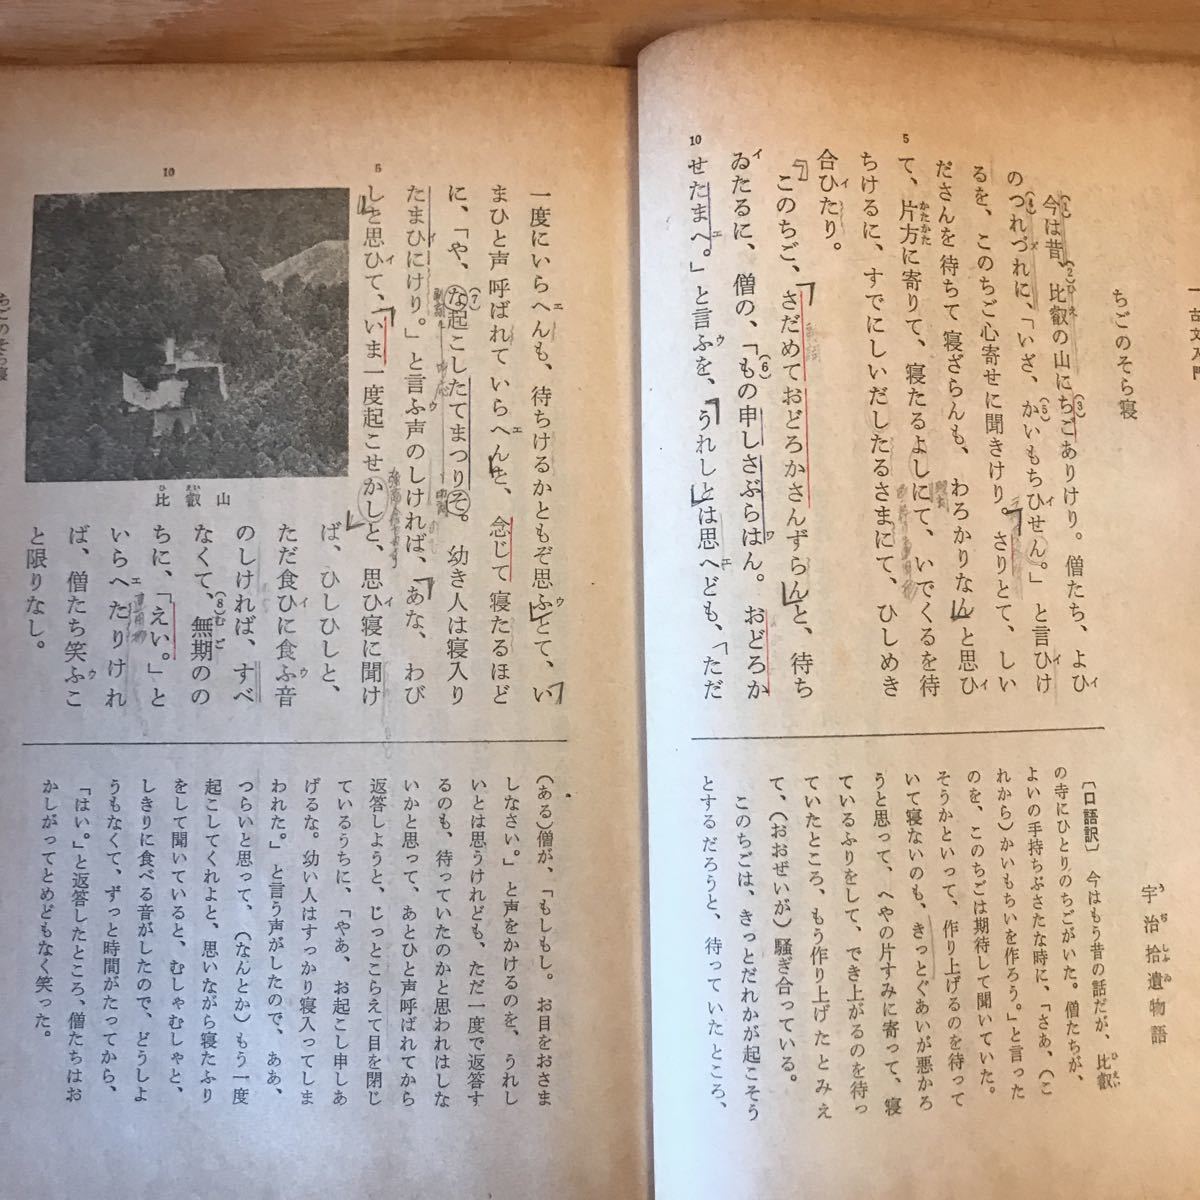 一 古文入門
ちごのそら寝
宇治拾遺物語
今は昔、比叡の山にちごありけり。僧たち、よひ
のつれづれに、「いざ、かいもちひせん。」と言ひけ
るを、このちご心寄せに聞きけり。さりとて、しい
ださんを待ちて寝ざらんも、わろかりなんと思ひ
て、片方に寄りて、寝たるよしにて、いでくるを待
ちけるに、すでにしいだしたるさまにて、ひしめき
合ひたり。
このちご、さだめておどろかさんずらんと、待ち
ゐたるに、僧の、「もの申しさぶらはん。おどろか
せたまへ。」と言ふを、うれしとは思へども、「ただ
〔口語訳〕 今はもう昔の話だが、比叡
の寺にひとりのちごがいた。僧たちが、
よいの手持ちぶさたな時に、「さあ、(こ
れから)かいもちいを作ろう。」と言った
のを、このちごは期待して聞いていた。
そうかといって、作り上げるのを待って
いて寝ないのも、きっとぐあいが悪かろ
うと思って、へやの片すみに寄って、寝
ているふりをして、でき上がるのを待っ
ていたところ、もう作り上げたとみえ
て、(おおぜいが)騒ぎ合っている。
このちごは、きっとだれかが起こそう
とするだろうと、待っていたところ、
一度にいらへんも、待ちけるかともぞ思ふとて、い
まひと声呼ばれていらへんと、念じて寝たるほど
に、「や、な起こしたてまつりそ。幼き人は寝入り
たまひにけり。」と言ふ声のしければ、あな、わび
しと思ひて、いま一度起こせかしと、思ひ寝に聞け
ば、ひしひしと、
ただ食ひに食ふ音
のしければ、すべ
なくて、無期のの
ちに、「えい。」と
いらへたりけれ
ば、僧たち笑ふこ
と限りなし。
比叡山
(ある)僧が、「もしもし。お目をおさま
しなさい。」と声をかけるのを、うれし
いとは思うけれども、ただ一度で返答す
るのも、待っていたのかと思われはしな
いかと思って、あとひと声呼ばれてから
返答しようと、じっとこらえて目を閉じ
ているうちに、「やあ、お起こし申しあ
げるな。幼い人はすっかり寝入ってしま
われた。」と言う声がしたので、ああ、
つらいと思って、(なんとか)もう一度
起こしてくれよと、思いながら寝たふり
をして聞いていると、むしゃむしゃと、
しきりに食べる音がしたので、どうしよ
うもなくて、ずっと時間がたってから、
「はい。」と返答したところ、僧たちはお
かしがってとめどもなく笑った。
ちごのそら寝